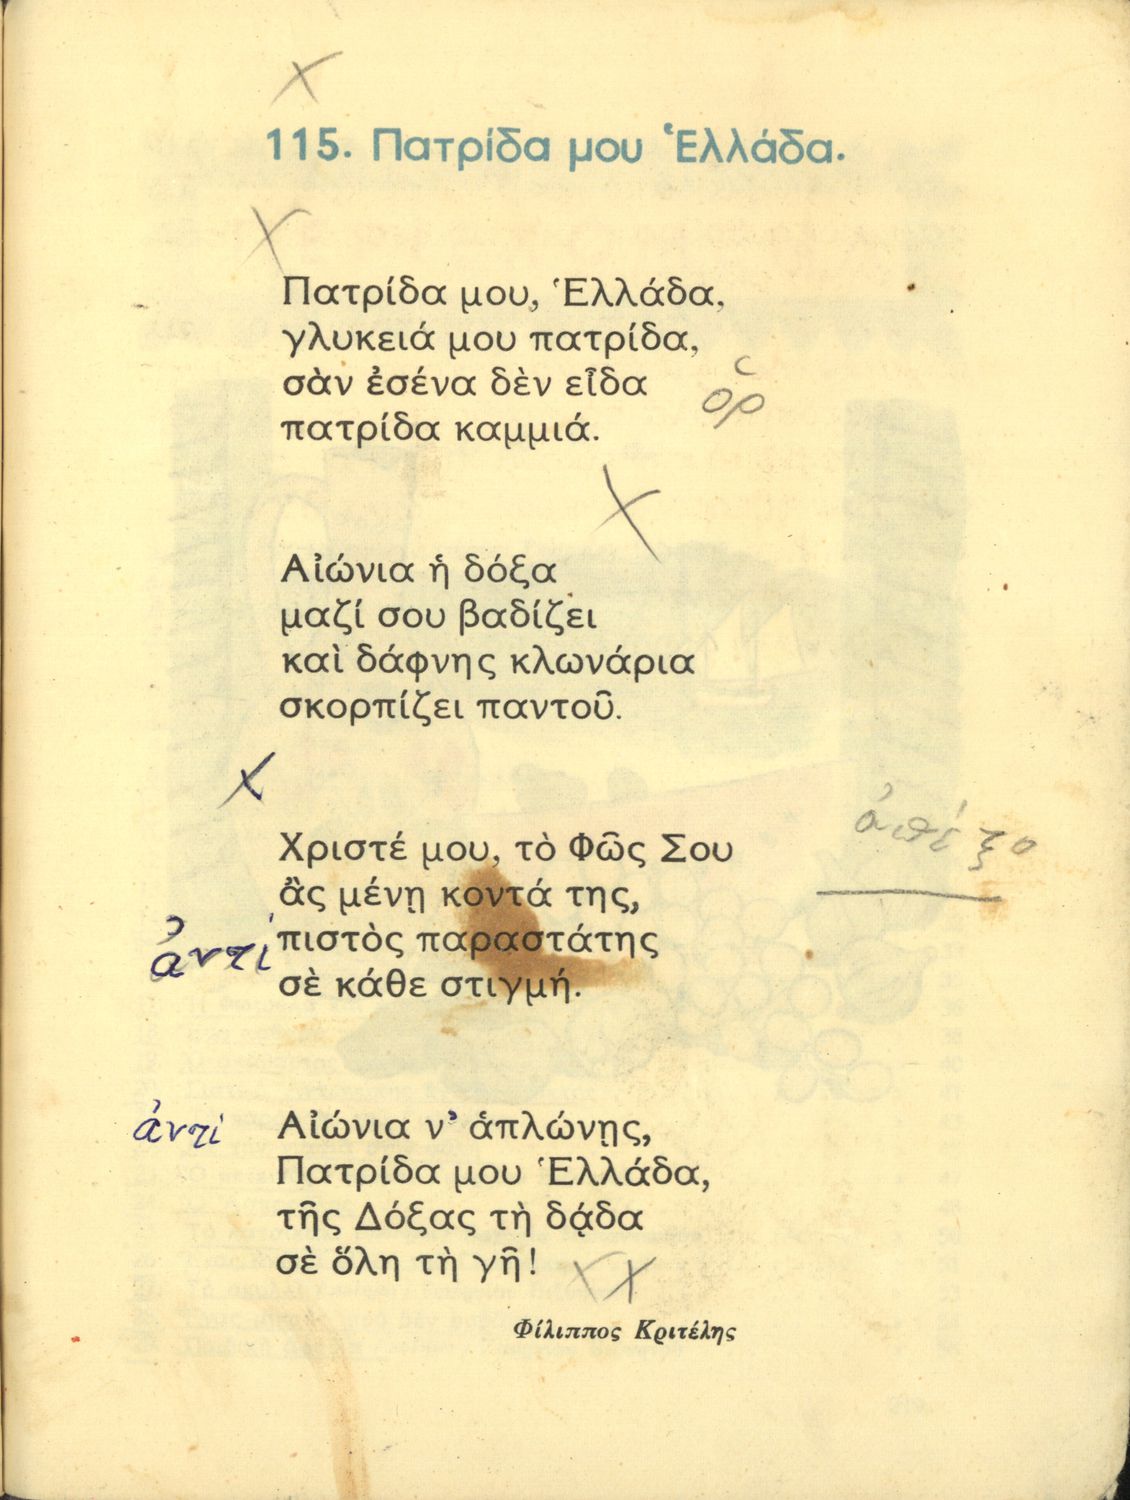 115. Πατρίδα μου Ἑλλάδα.
Πατρίδα μου, Ἑλλάδα,
γλυκειά μου πατρίδα,
σὰν ἐσένα δὲν εἶδα
πατρίδα καμμιά.
Αἰώνια ἡ δόξα
μαζί σου βαδίζει
καὶ δάφνης κλωνάρια
σκορπίζει παντοῦ.
Χριστέ μου, τὸ Φῶς Σου
ἂς μένῃ κοντά της,
ἀντί
πιστὸς παραστάτης
σὲ κάθε στιγμή.
ἀντί
Αἰώνια ν’ ἁπλώνῃς,
Πατρίδα μου Ἑλλάδα,
τῆς Δόξας τὴ δᾴδα
σὲ ὅλη τὴ γῆ!
Φίλιππος Κριτέλης